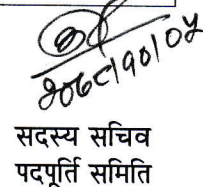 २०७८।१०।०५
सदस्य सचिव
पदपूर्ति समिति